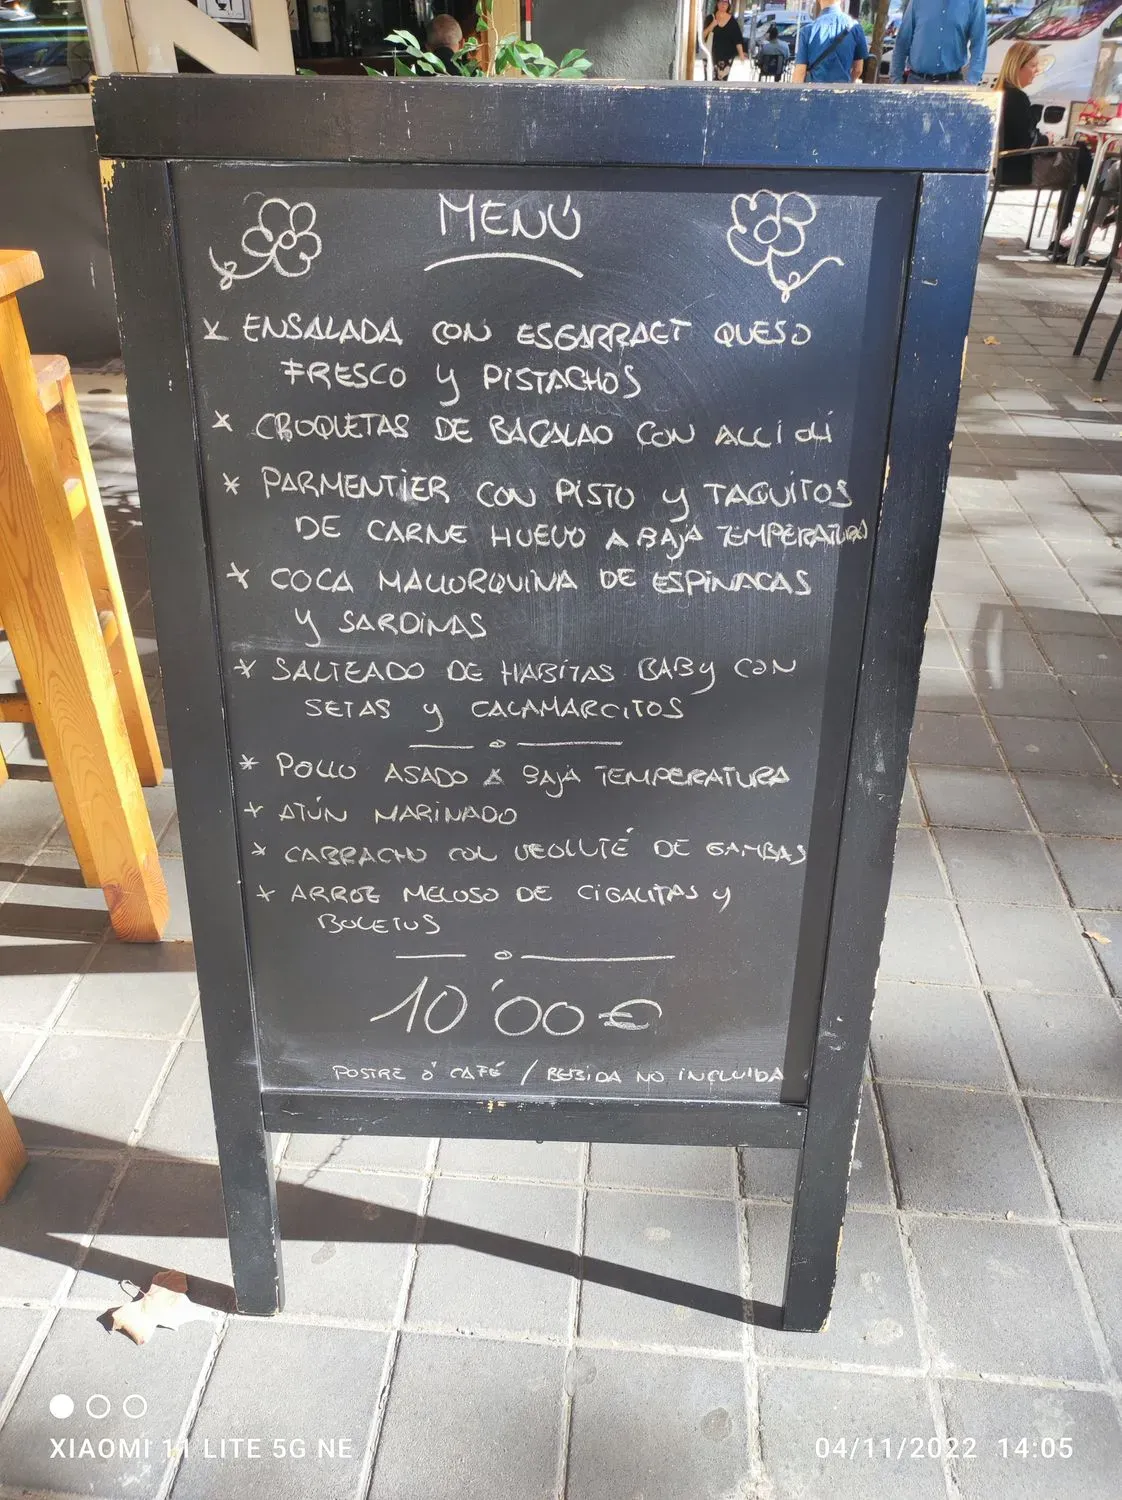 MENÚ
* ENSALADA CON ESGARRAET QUESO
FRESCO Y PISTACHOS
* CROQUETAS DE BACALAO CON ALLI OLI
* PARMENTIER CON PISTO Y TAQUITOS
DE CARNE HUEVO A BAJA TEMPERATURA
* COCA MALLORQUINA DE ESPINACAS
Y SARDINAS
* SALTEADO DE HABITAS BABY CON
SETAS Y CALAMARCITOS
* POLLO ASADO A BAJA TEMPERATURA
* ATÚN MARINADO
* CABRACHO CON VEOLUTÉ DE GAMBAS
* ARROZ MELOSO DE CIGALITAS Y
BOLETUS
10'00€
POSTRE Ó CAFÉ / BEBIDA NO INCLUIDA
XIAOMI 11 LITE 5G NE
04/11/2022 14:05